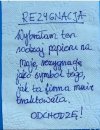 REZYGNACJA
Wybrałam ten
rodzaj papieru na
moją rezygnację
jako symbol tego,
jak ta firma mnie
traktowała.
ODCHODZĘ!